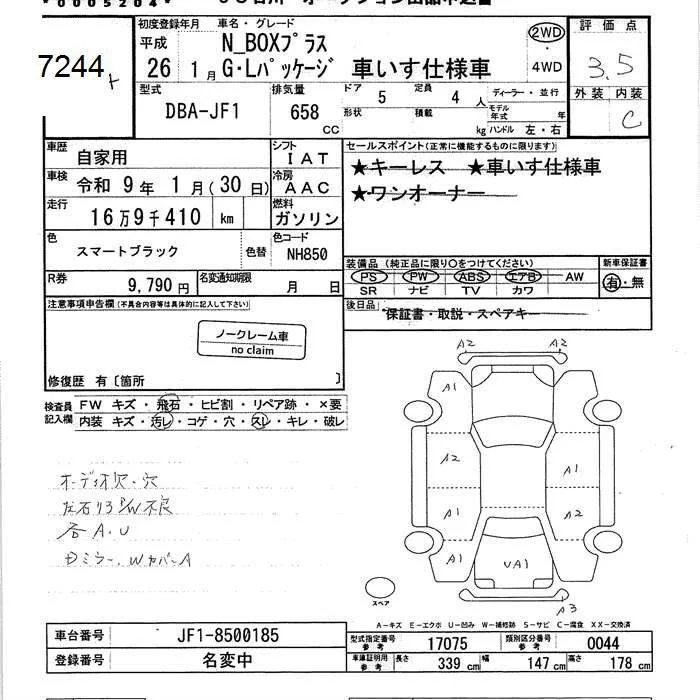 *0005204*
初度登録年月 車名・グレード
平成 N_BOXプラス
26 1月 G・Lパッケージ 車いす仕様車
2WD
・4WD
評価点
3.5
外装 内装
C
7244
型式 排気量 ドア 5 定員 4人 ディーラー・並行
DBA-JF1 658 CC 形状 積載 kg モデル年式 年
ハンドル 左・右
車歴 自家用 シフト IAT
車検 令和 9年 1月(30日) 冷房 AAC
走行 16万9千410 km 燃料 ガソリン
色 スマートブラック 色替 色コード NH850
R券 9,790円 名変通知期限 月 日
セールスポイント(正常に機能するものに限ります)
★キーレス ★車いす仕様車
★ワンオーナー
装備品(純正品に限り○をつけてください) 新車保証書
PS PW ABS エアB AW 有・無
SR ナビ TV カワ
後日品
保証書・取説・スペアキー
注意事項申告欄(不具合内容等は具体的に記入して下さい)
ノークレーム車
no claim
修復歴 有〔箇所 〕
検査員記入欄
FW キズ・飛石・ヒビ割・リペア跡・×要
内装 キズ・汚レ・コゲ・穴・スレ・キレ・破レ
オーディオ欠・穴
左右リヤP/W不良
各A.U
Dミラー、WカバーA
A2 A2
A1 A1
A2 A1
A1 A2
A1 UA1 A1
A3
スペア
A-キズ E-エクボ U-凹み W-補修跡 S-サビ C-腐食 XX-交換済
車台番号 JF1-8500185
登録番号 名変中
型式指定番号 参考 17075 類別区分番号 参考 0044
車庫証明用 参考 長さ 339 cm 幅 147 cm 高さ 178 cm